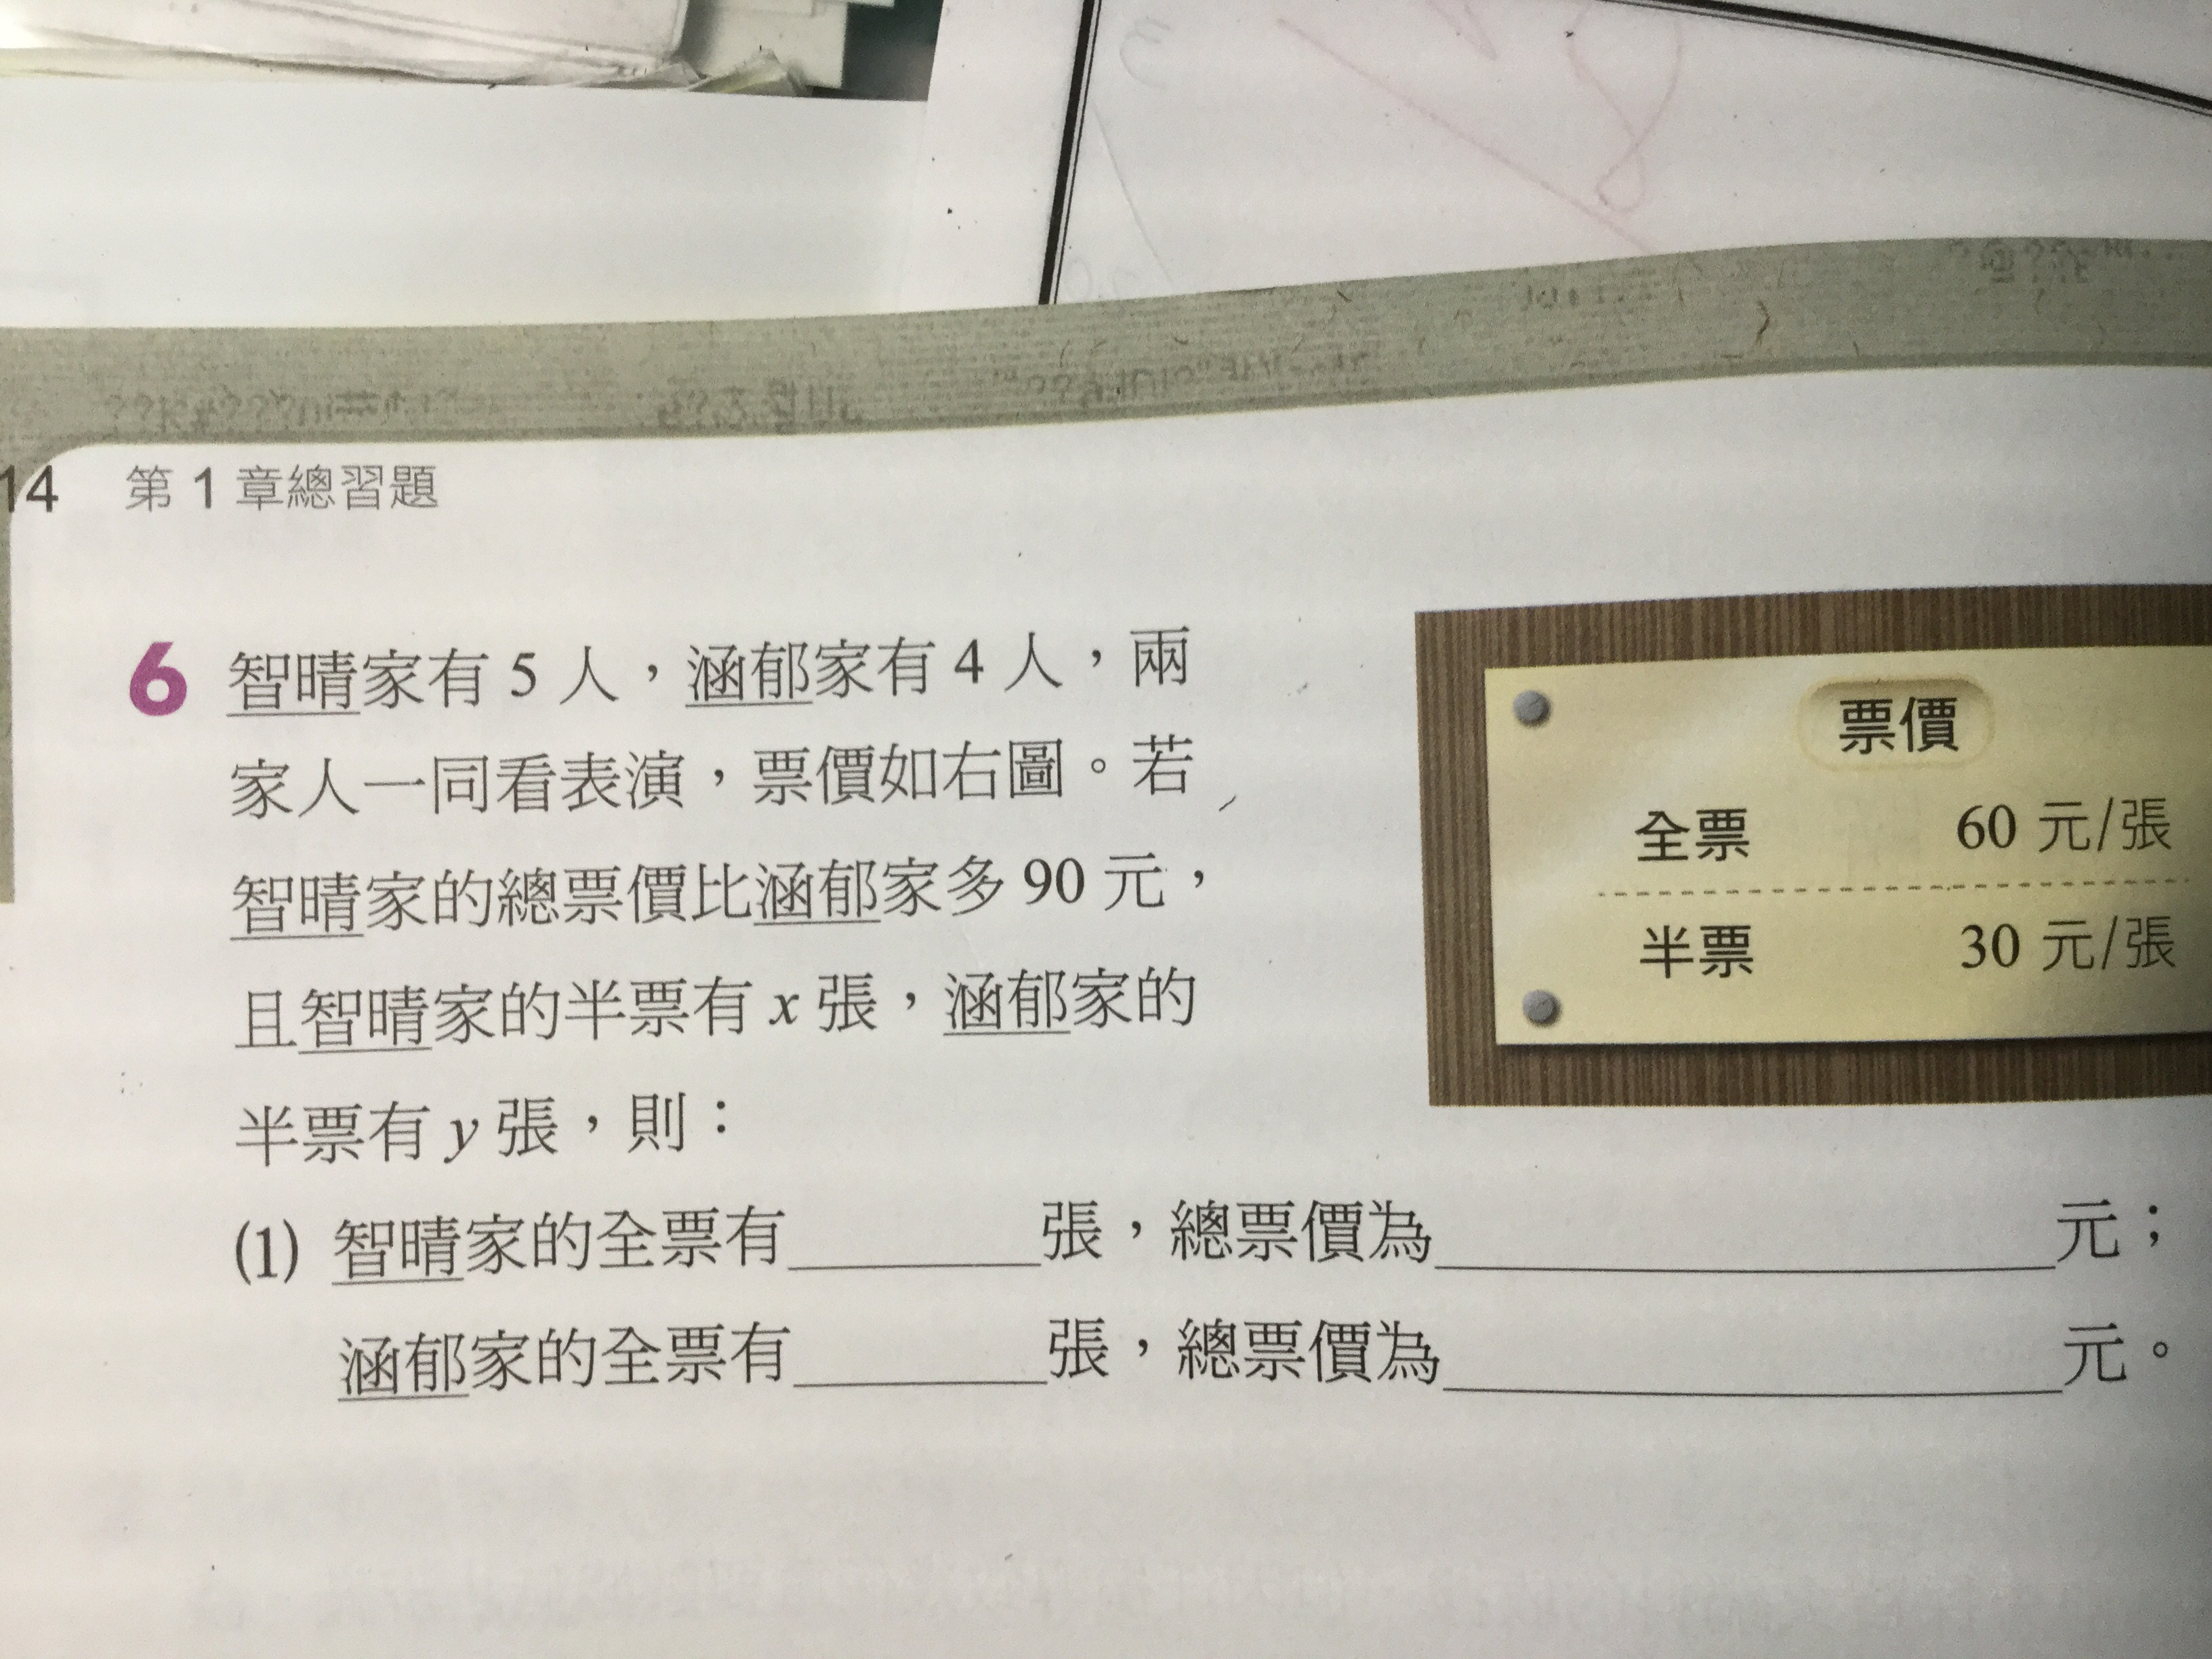 14 第 1 章總習題
6 智晴家有 5 人，涵郁家有 4 人，兩
家人一同看表演，票價如右圖。若
智晴家的總票價比涵郁家多 90 元，
且智晴家的半票有 x 張，涵郁家的
半票有 y 張，則：
票價
全票 60 元/張
半票 30 元/張
(1) 智晴家的全票有________張，總票價為____________________元；
涵郁家的全票有________張，總票價為____________________元。